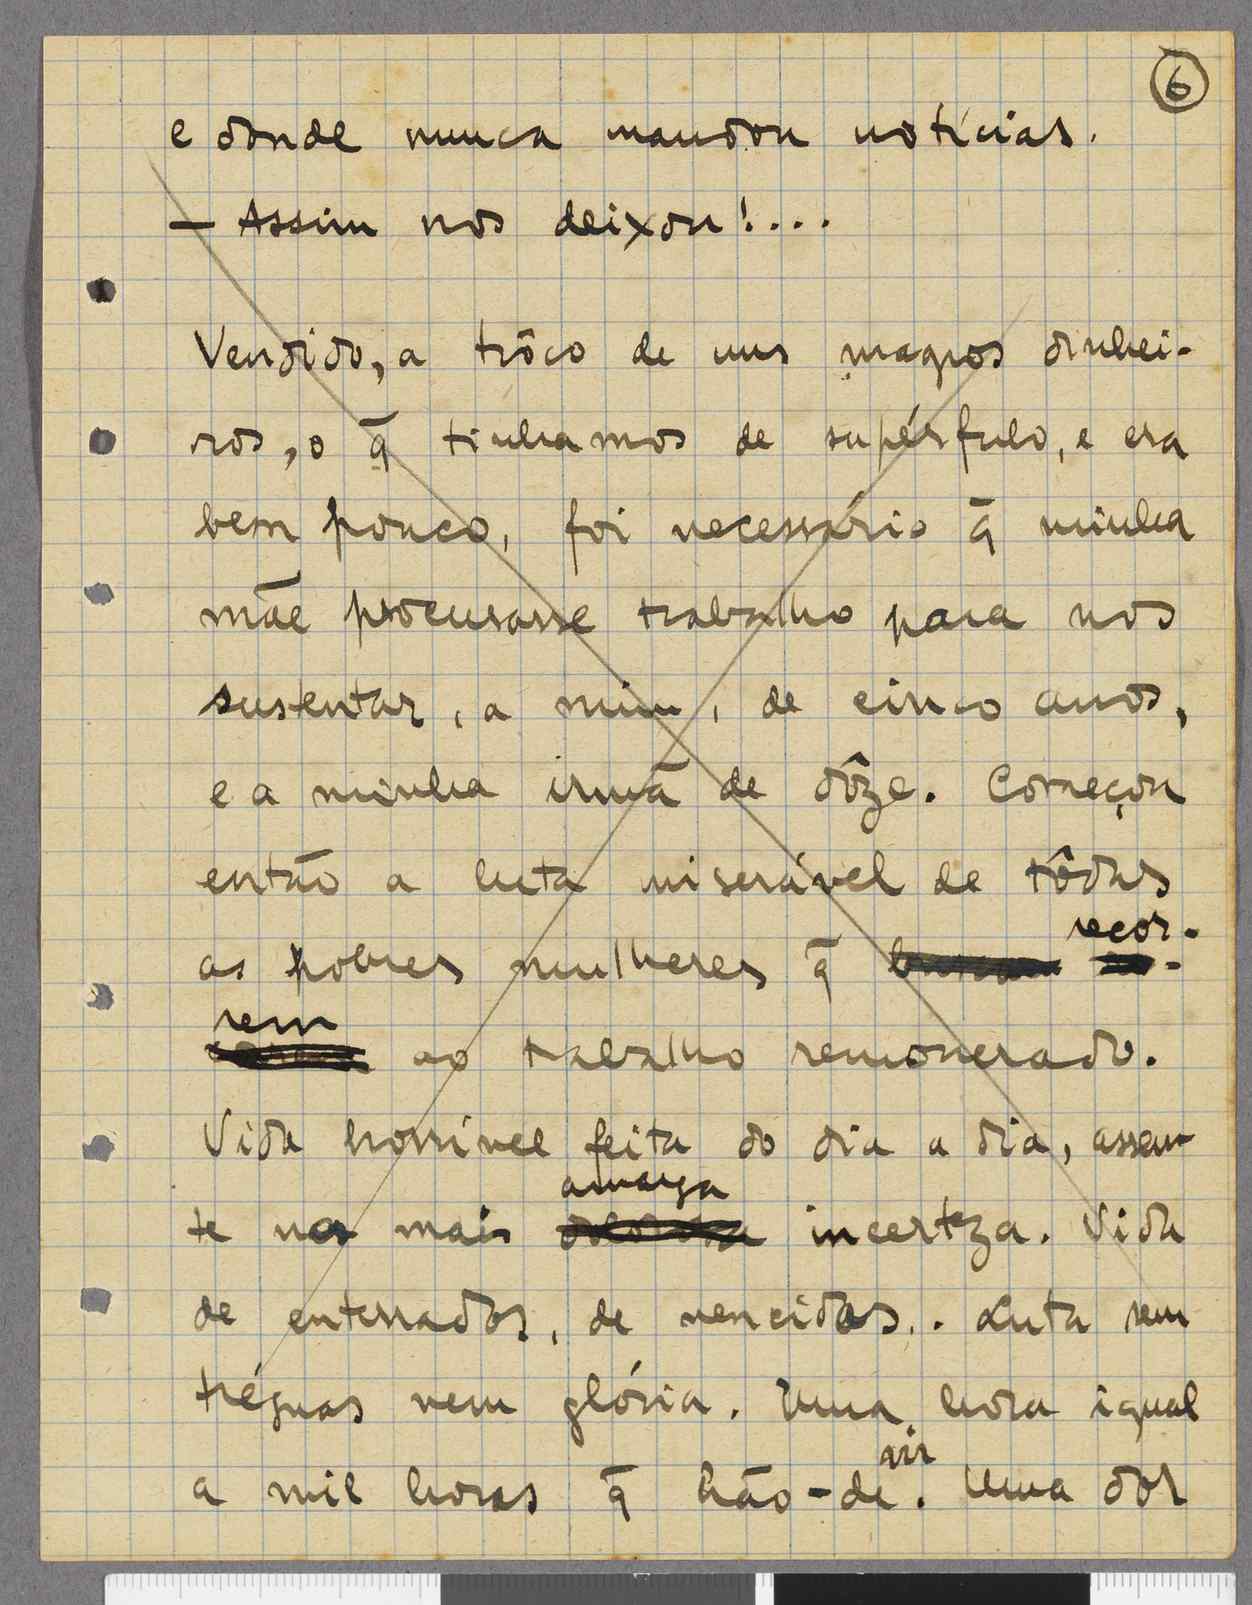 6
e donde nunca mandou notícias.
— Assim nos deixou!...
Vendido, a trôco de uns magros dinhei-
ros, o q̄ tinhamos de supérfulo, e era
bem pouco, foi necessário q̄ minha
mãe procurasse trabalho para nos
sustentar, a mim, de cinco anos,
e a minha irmã de dôze. Começou
então a luta miserável de tôdas
recor-
as pobres mulheres q̄
rem
ao trabalho remonerado.
Vida horrível feita do dia a dia, assen-
amarga
te na mais dolorosa incerteza. Vida
de enterrados, de vencidos.. Luta sem
tréguas nem glória. Uma hora igual
vir
a mil horas q̄ hão-de. Uma dor